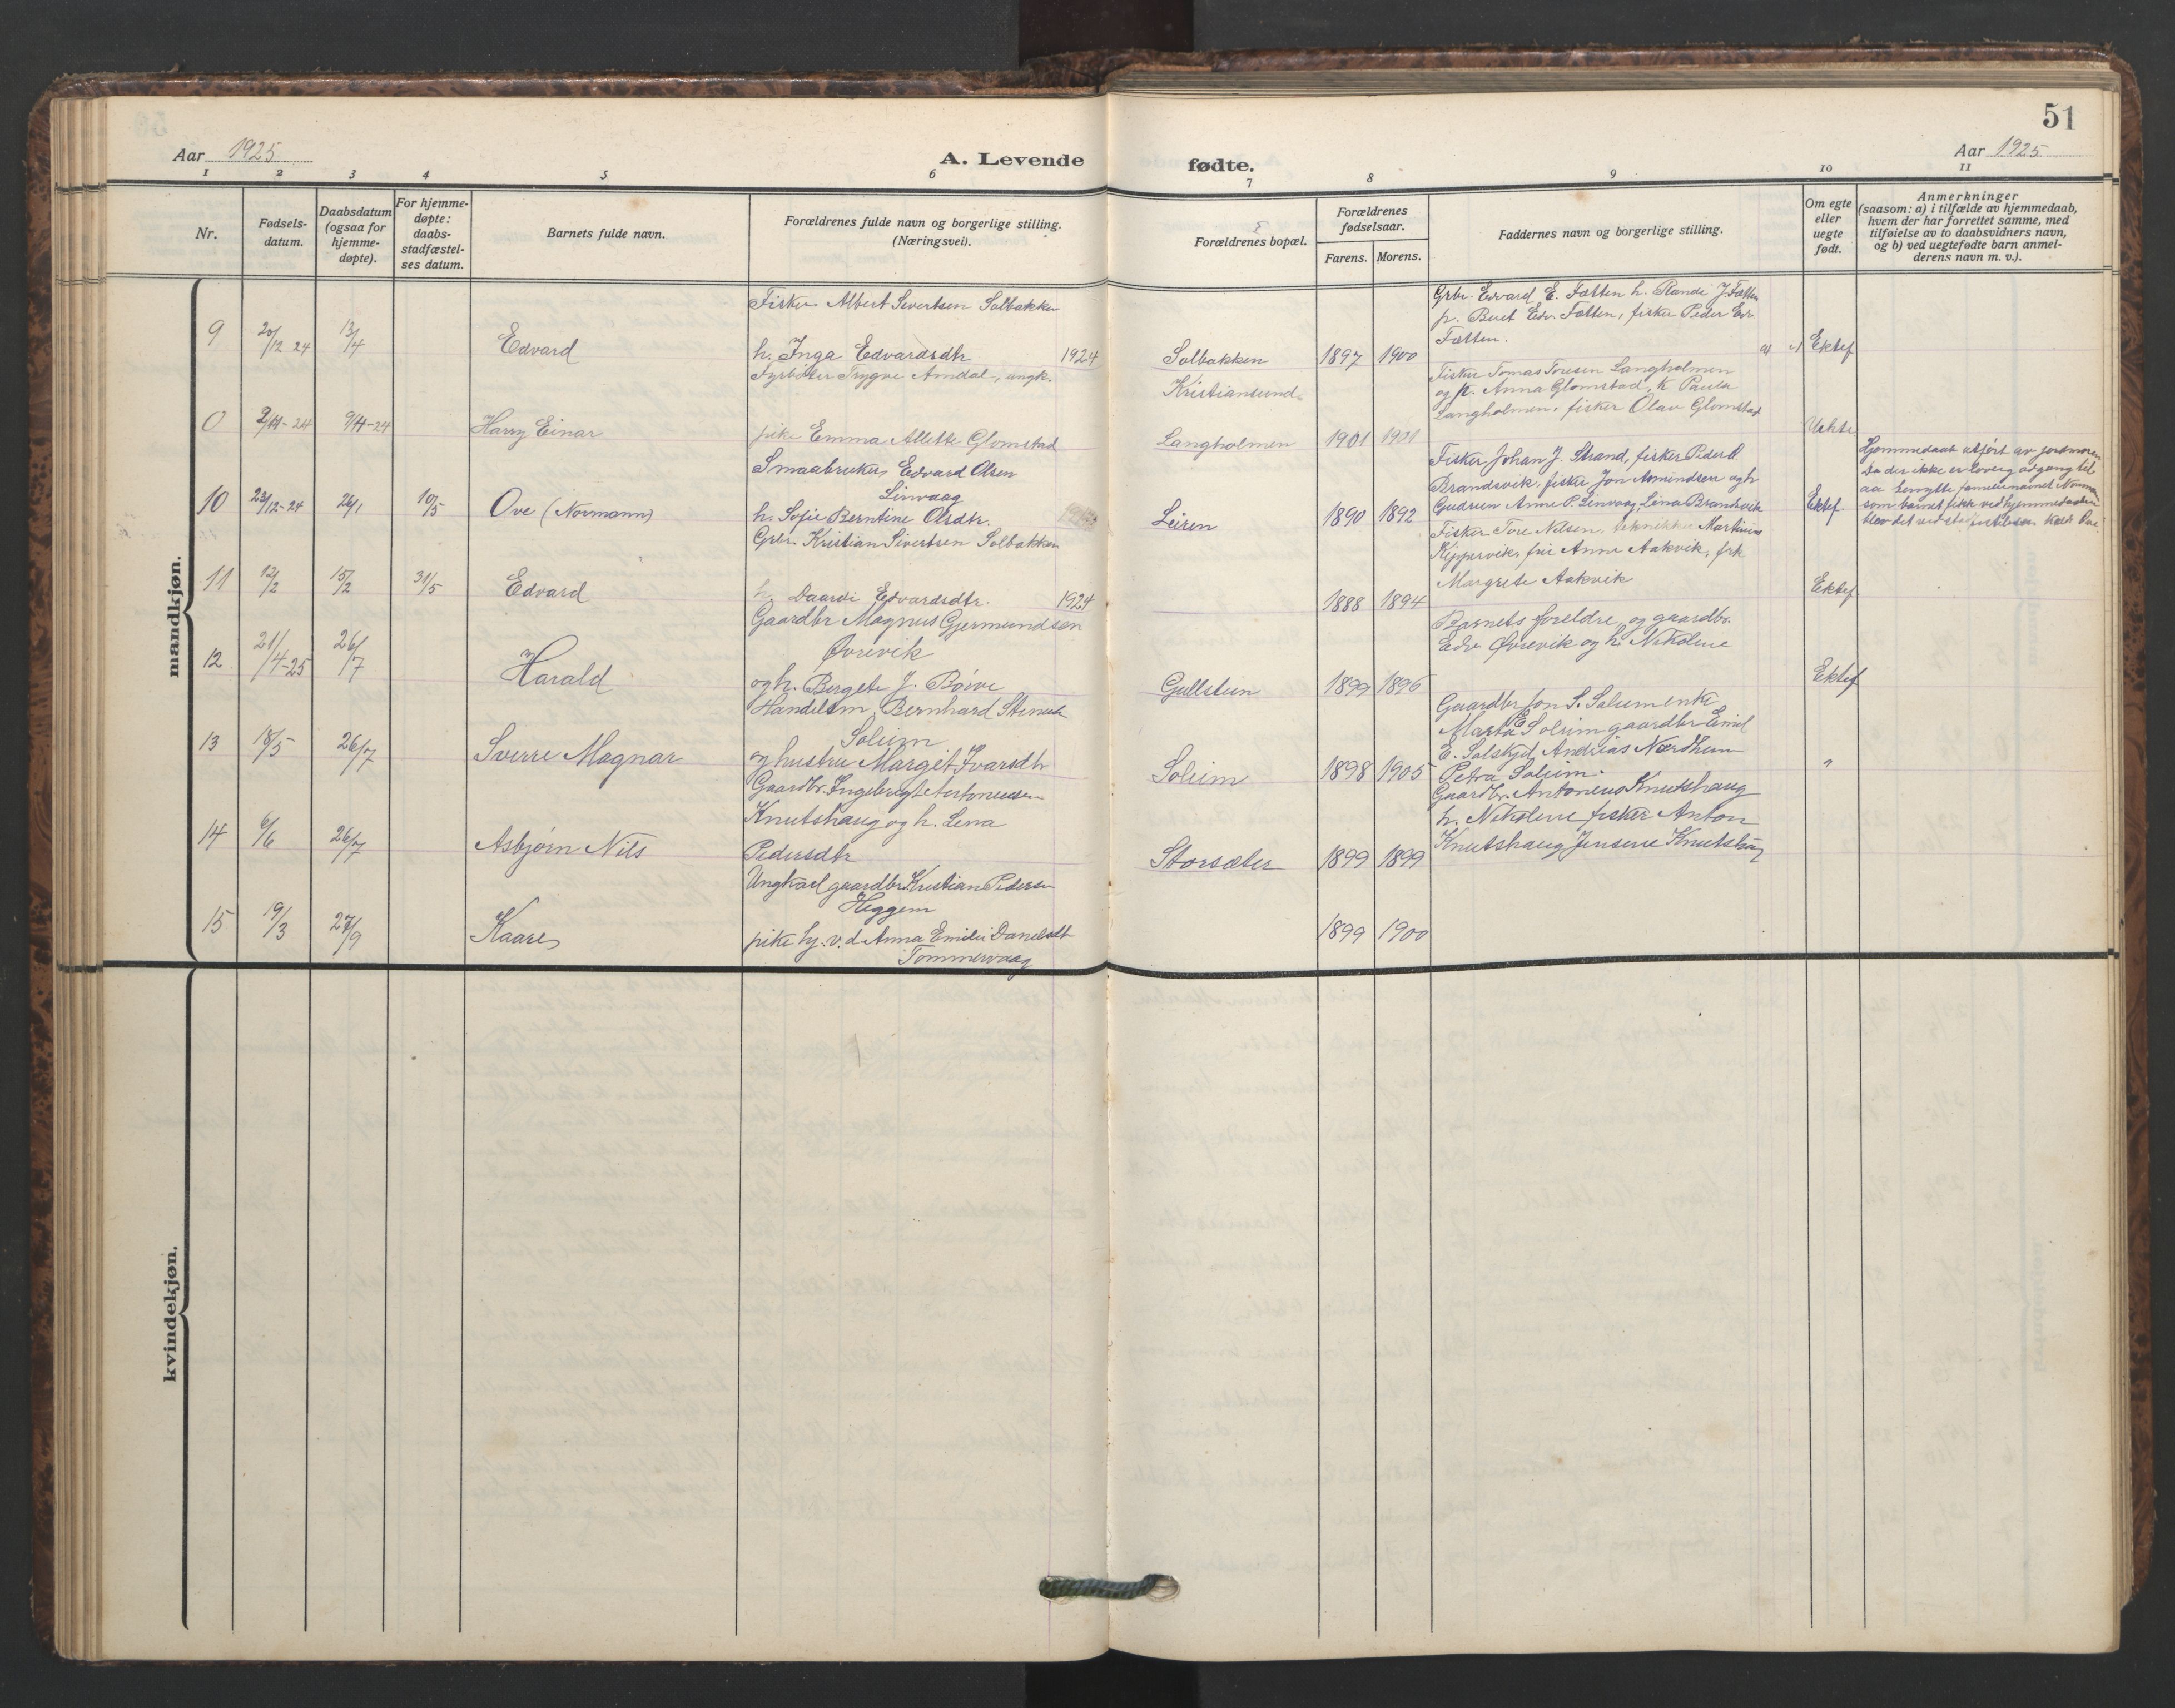 51
Aar 1925
A. Levende
fødte.
Aar 1925
1 2 3 4 5 6 7 8 9 10 11
Nr.
Fødsels-
datum.
Daabsdatum
(ogsaa for
hjemme-
døpte).
For hjemme-
døpte:
daabs-
stadfæstel-
ses datum.
Barnets fulde navn.
Forældrenes fulde navn og borgerlige stilling.
(Næringsvei).
Forældrenes bopæl.
Forældrenes
fødselsaar.
Farens. Morens.
Faddernes navn og borgerlige stilling.
Om egte
eller
uegte
født.
Anmerkninger
(saasom: a) i tilfælde av hjemmedaab,
hvem der har forrettet samme, med
tilføielse av to daabsvidners navn,
og b) ved uegtefødte barn anmel-
derens navn m. v.).
mandkjøn.
9 20/12 24 13/4 Edvard
Fisker Albert Sivertsen Solbakken
h. Inga Edvardsdtr 1924
Solbakken 1897 1900
Grbr. Edvard E. Fætten h. Randi J. Fætten
p. Beret Edv. Fætten, fisker Peder Edv.
Fætten.
Ektef
0 9/4-24 Harry Einar
Fyrbøter Trygve Amdal, ungk.
pike Emma Alette Glomstad
Kristiansund
Langholmen 1901 1901
Fisker Tomas Toresen Langholmen
og p. Anna Glomstad, k Paula
Langholmen, fisker Olav Glomstad
Uekte
10 23/12-24 26/1 10/5 Ove (Normann)
Smaabruker Edvard Olsen
Linvaag
h. Sofie Berntine Olsdtr.
Leiren 1890 1892
Fisker Johan J. Strand, fisker Peder O
Brandsvik, fisker Jon Asmundsen og h
Gudrun Anne P. Linvaag Lina Brandsvik
Ektef
Hjemmedaab utført av jordmoren
Da der ikke er lovlig adgang til
aa benytte familienavnet Norman
som barnet fikk ved hjemmedaaben
blev det ved stadfestelsen kaldt Ove
11 12/2 15/2 31/5 Edvard
Grbr. Kristian Sivertsen Solbakken
h. Daardi Edvardsdtr. 1924
1888 1894
Fisker Tore Nilsen, tekniker Martinius
Kippervik, frk Anne Aakvik, frk
Margrete Aakvik
Ektef
12 21/4-25 26/7 Harald
Gaardbr Magnus Gjermundsen
Øvrevik
og h. Bergete J. Bøive
Gullstein 1899 1896
Barnets foreldre, og gaardbr.
Edv Øvrevik og h. Nikoline
Ektef
13 18/5 26/7 Sverre Magnar
Handelsm. Bernhard Stener
Soleim
og hustru Margit Ivarsdtr
Soleim 1898 1905
Gaardbr Jon S. Soleim enke
Marta E Soleim gaardbr Emil
E. Solskjel Andreas Nordheim
Petra Soleim.
"
14 6/6 26/7 Asbjørn Nils
Gaardbr. Ingebrigt Antoneusen
Knutshaug og h. Lena
Pedersdtr
Storsæter 1899 1899
Gaardbr. Antoneus Knutshaug
h. Nikoline fisker Anton
Knutshaug Jensine Knutshaug
15 19/3 27/9 Kaare
Ungkarl gaardbr Kristian Pedersen
Heggem
pike hj. v. d Anna Emilie Danelsdtr
Tømmervaag
1899 1900
kvindekjøn.